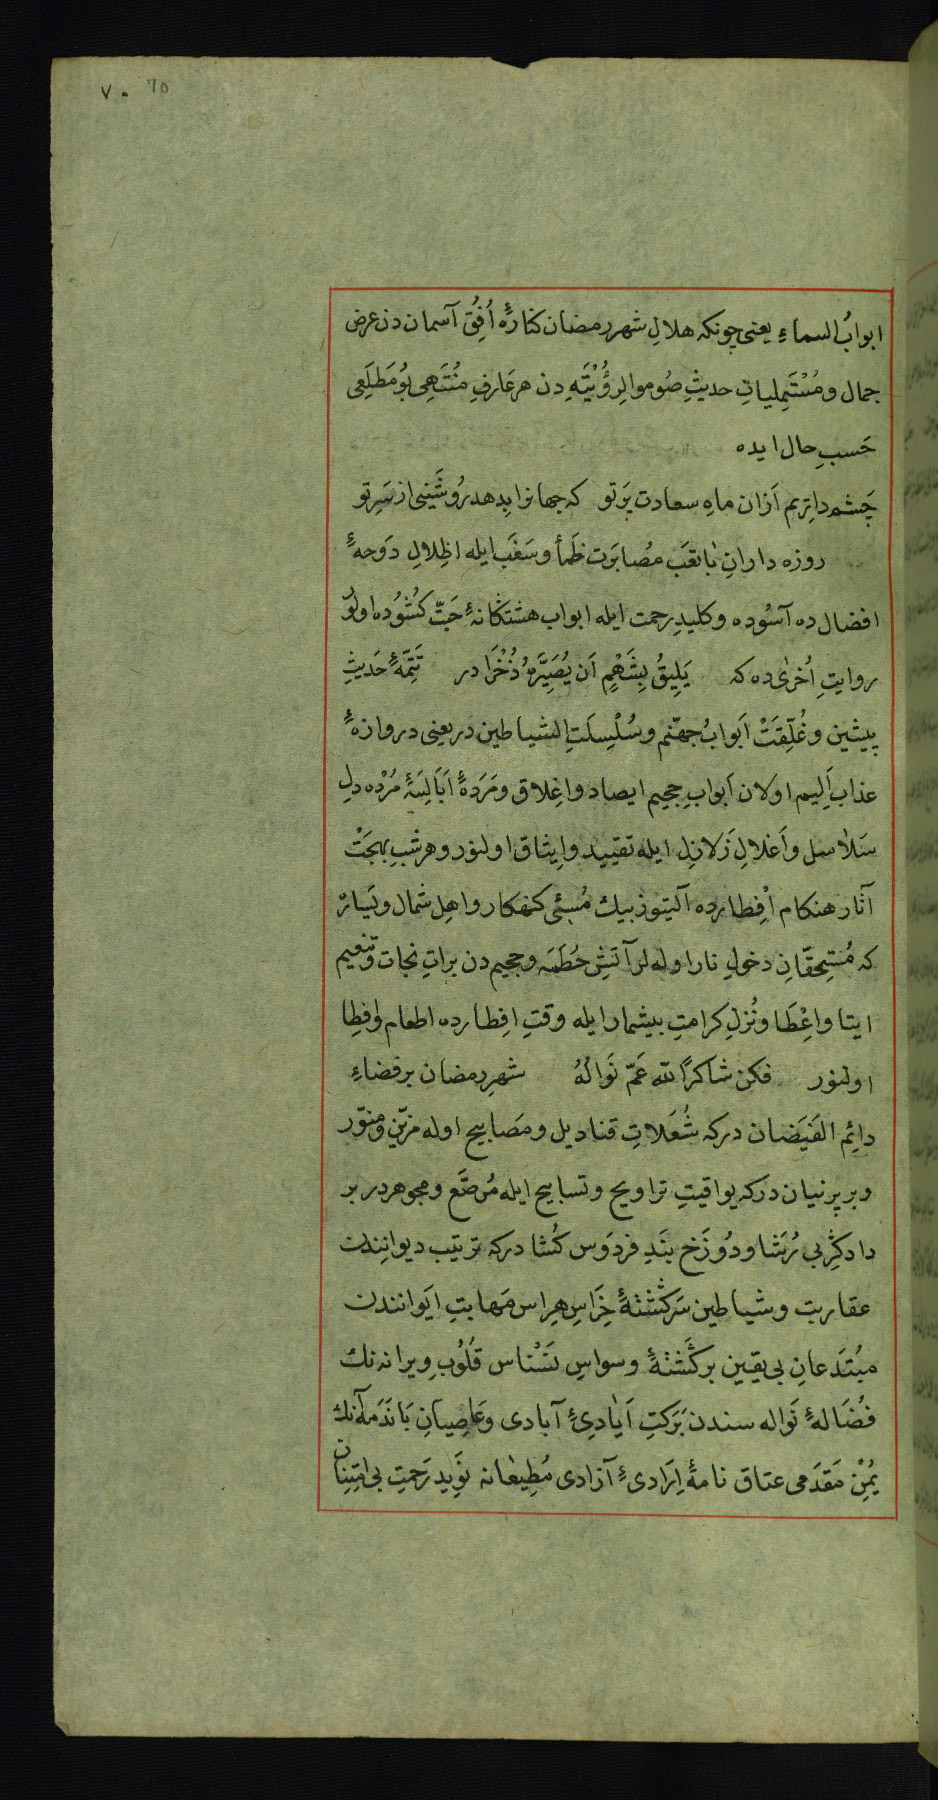 ٧٠ 70
ابوابُ السماءِ یعنی چونکه هلالِ شهر رمضان کنارهٔ اُفُقِ آسمان دن عرض
جمال و مُسْتَهِلیانِ حدیثِ صُوموا لِرؤُیَتِهِ دن هر عَارفِ مُنْتَهِی بُو مَطلَعِی
حَسبِ حال ایده
چَشم داتِریم اَزان ماهِ سعادت پَرتو که جهانرا بِدهد رُوشَنیی از سَرِ تو
روزه دارانِ باتعَب مصُابَرت ظَمأ وسَغَب ایله اظِلالِ دَوحهٔ
افضال ده آسُوده وکلیدِ رحمت ایله ابواب هشتکانهٔ جَنّت کُشوُده اولُو
روایتِ اُخرٰی ده که یَلِیقُ بِشَهْمٍ اَن یُصَیِّرَهُ ذُخْرًا در تَتِمَّهٔ حَدیثِ
پیشین و غُلِّقَتْ اَبوابُ جهنّم وسُلْسِلَتِ الشیاطین در یعنی دروازهٔ
عذاب اَلِیم اولان اَبوابِ جحیم ایصاد واغِلاق ومَرَدهٔ اَبَالِسَهٔ مُرْده دلِ
سَلاٰسل واَغلالِ زَلازِل ایله تقیِید واِیثاق اولنور وهر شَبِ بهجَتْ
آثار هنکام اْفِطارده آلتیوز بیك مُسئی کنهکار واهلِ شمال ویَسار
که مُستِحقّانِ دخولِ نار اوله لر آتشِ حُطَمَه وجحیم دن براتِ نجات وتنعیم
ایتا واغِطَا ونُزلِ کرامتِ بیشمار ایله وقتِ افِطارده اطعام وافِطا
اولنور فکن شاکراً لله عَمّ نَوالُهُ شهرِ رمضان بر فضاءِ
دائِم الفَیَضان درکه شُعَلاتِ قنادیل ومَصابیح اوله مزیّن ومنوّر
وبر پرنیان درکه یواقیتِ تراویح وتسابیح ایله مُرصَّع ومجوهر در بر
دادکَرِ بی رُشَا ودُوزَخ بَندِ فردَوس کُشا درکه ترتیب دیوانِندن
عفاریت وشیاطین سَرکَشتهٔ خِرَاسِ هِراس مَهابتِ ایَوانندن
مبُتَدعانِ بی یقین برکَشتهٔ وسواسِ نَسْناس قلُوُبِ ویرانه نك
فُضَالهٔ نَواله سندن بَرَکتِ اَیٰادِیٔ آبادی وعَاصِیانِ بَانَدَمه نك
یُمْنِ مَقدَمی عتاق نامهٔ اِرَادیٔ آزادی مُطِیعٰانه نَوِید رَحمتِ بی امتِنان